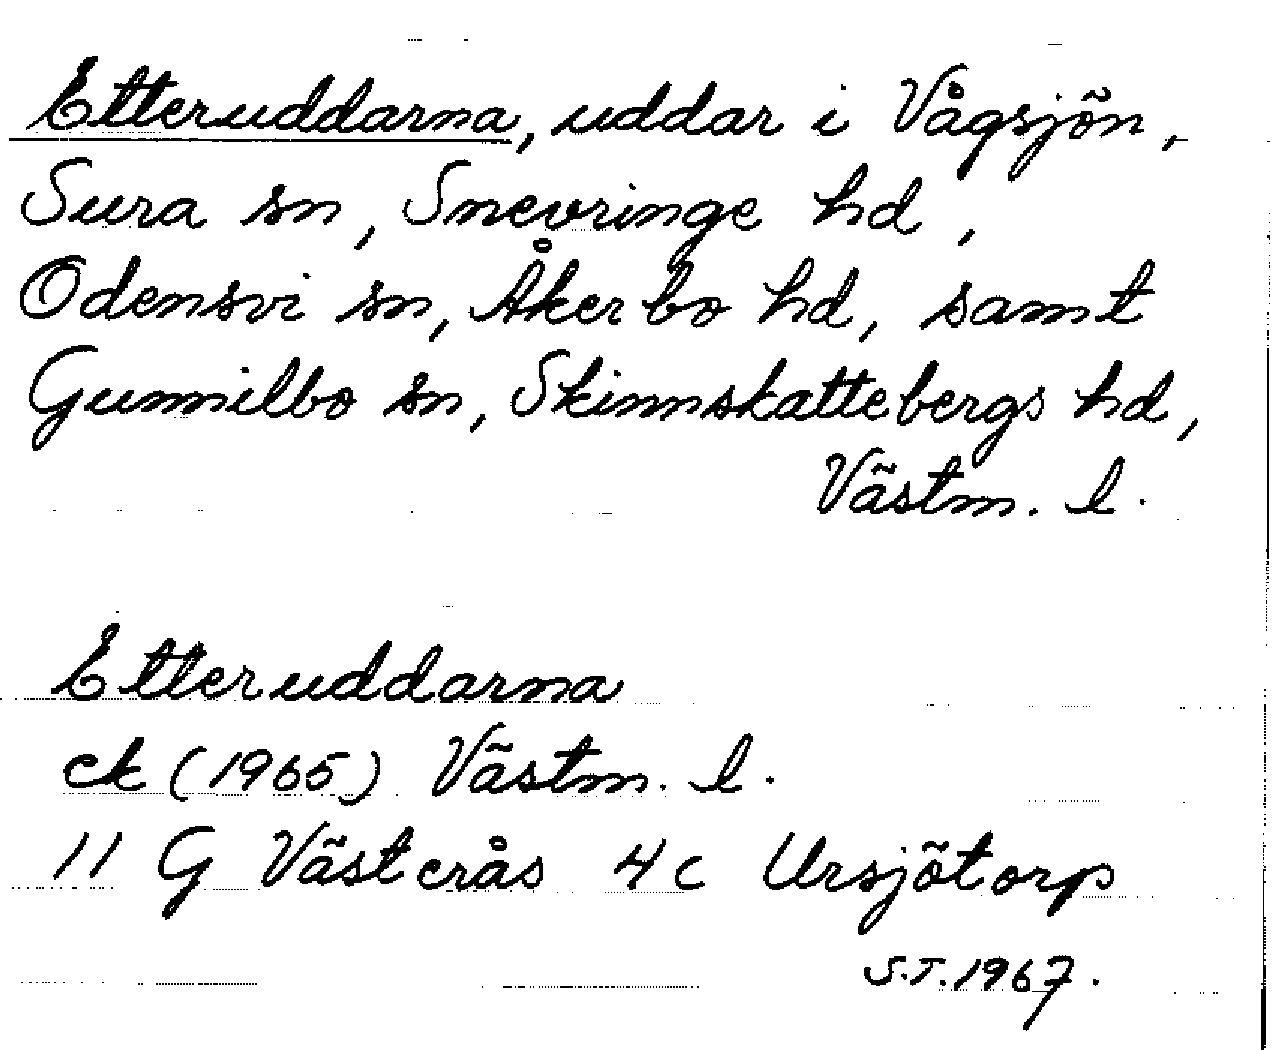 Etteruddarna, uddar i Vågsjön,
Sura sn, Snevringe hd,
Odensvi sn, Åkerbo hd, samt
Gunnilbo sn, Skinnskattebergs hd,
Västm. l.
Etteruddarna
ek (1965) Västm. l.
11 G Västerås 4c Ursjötorp
S.T. 1967.